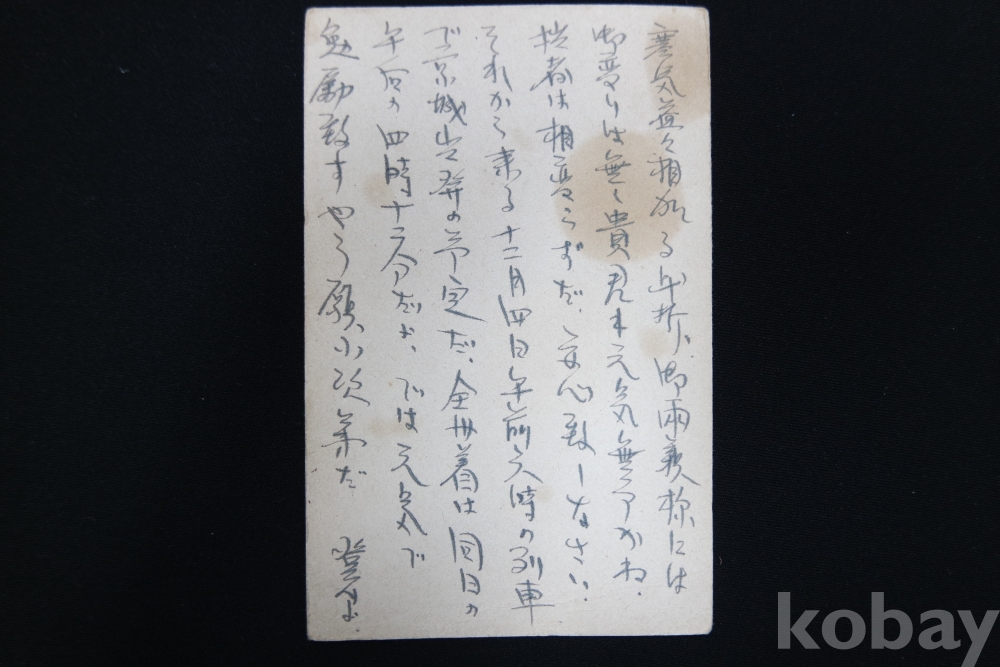 寒気益々相加る年折、御両親様には
御変りは無く貴君も元気無事かね。
拙者は相変らずだ、安心致しなさい。
それから来る十二月四日午前六時の列車
で京城出発の予定だ、全州着は同日の
午后の四時十二分だよ、では元気で
勉励致すやう願ふ次第だ
kobay